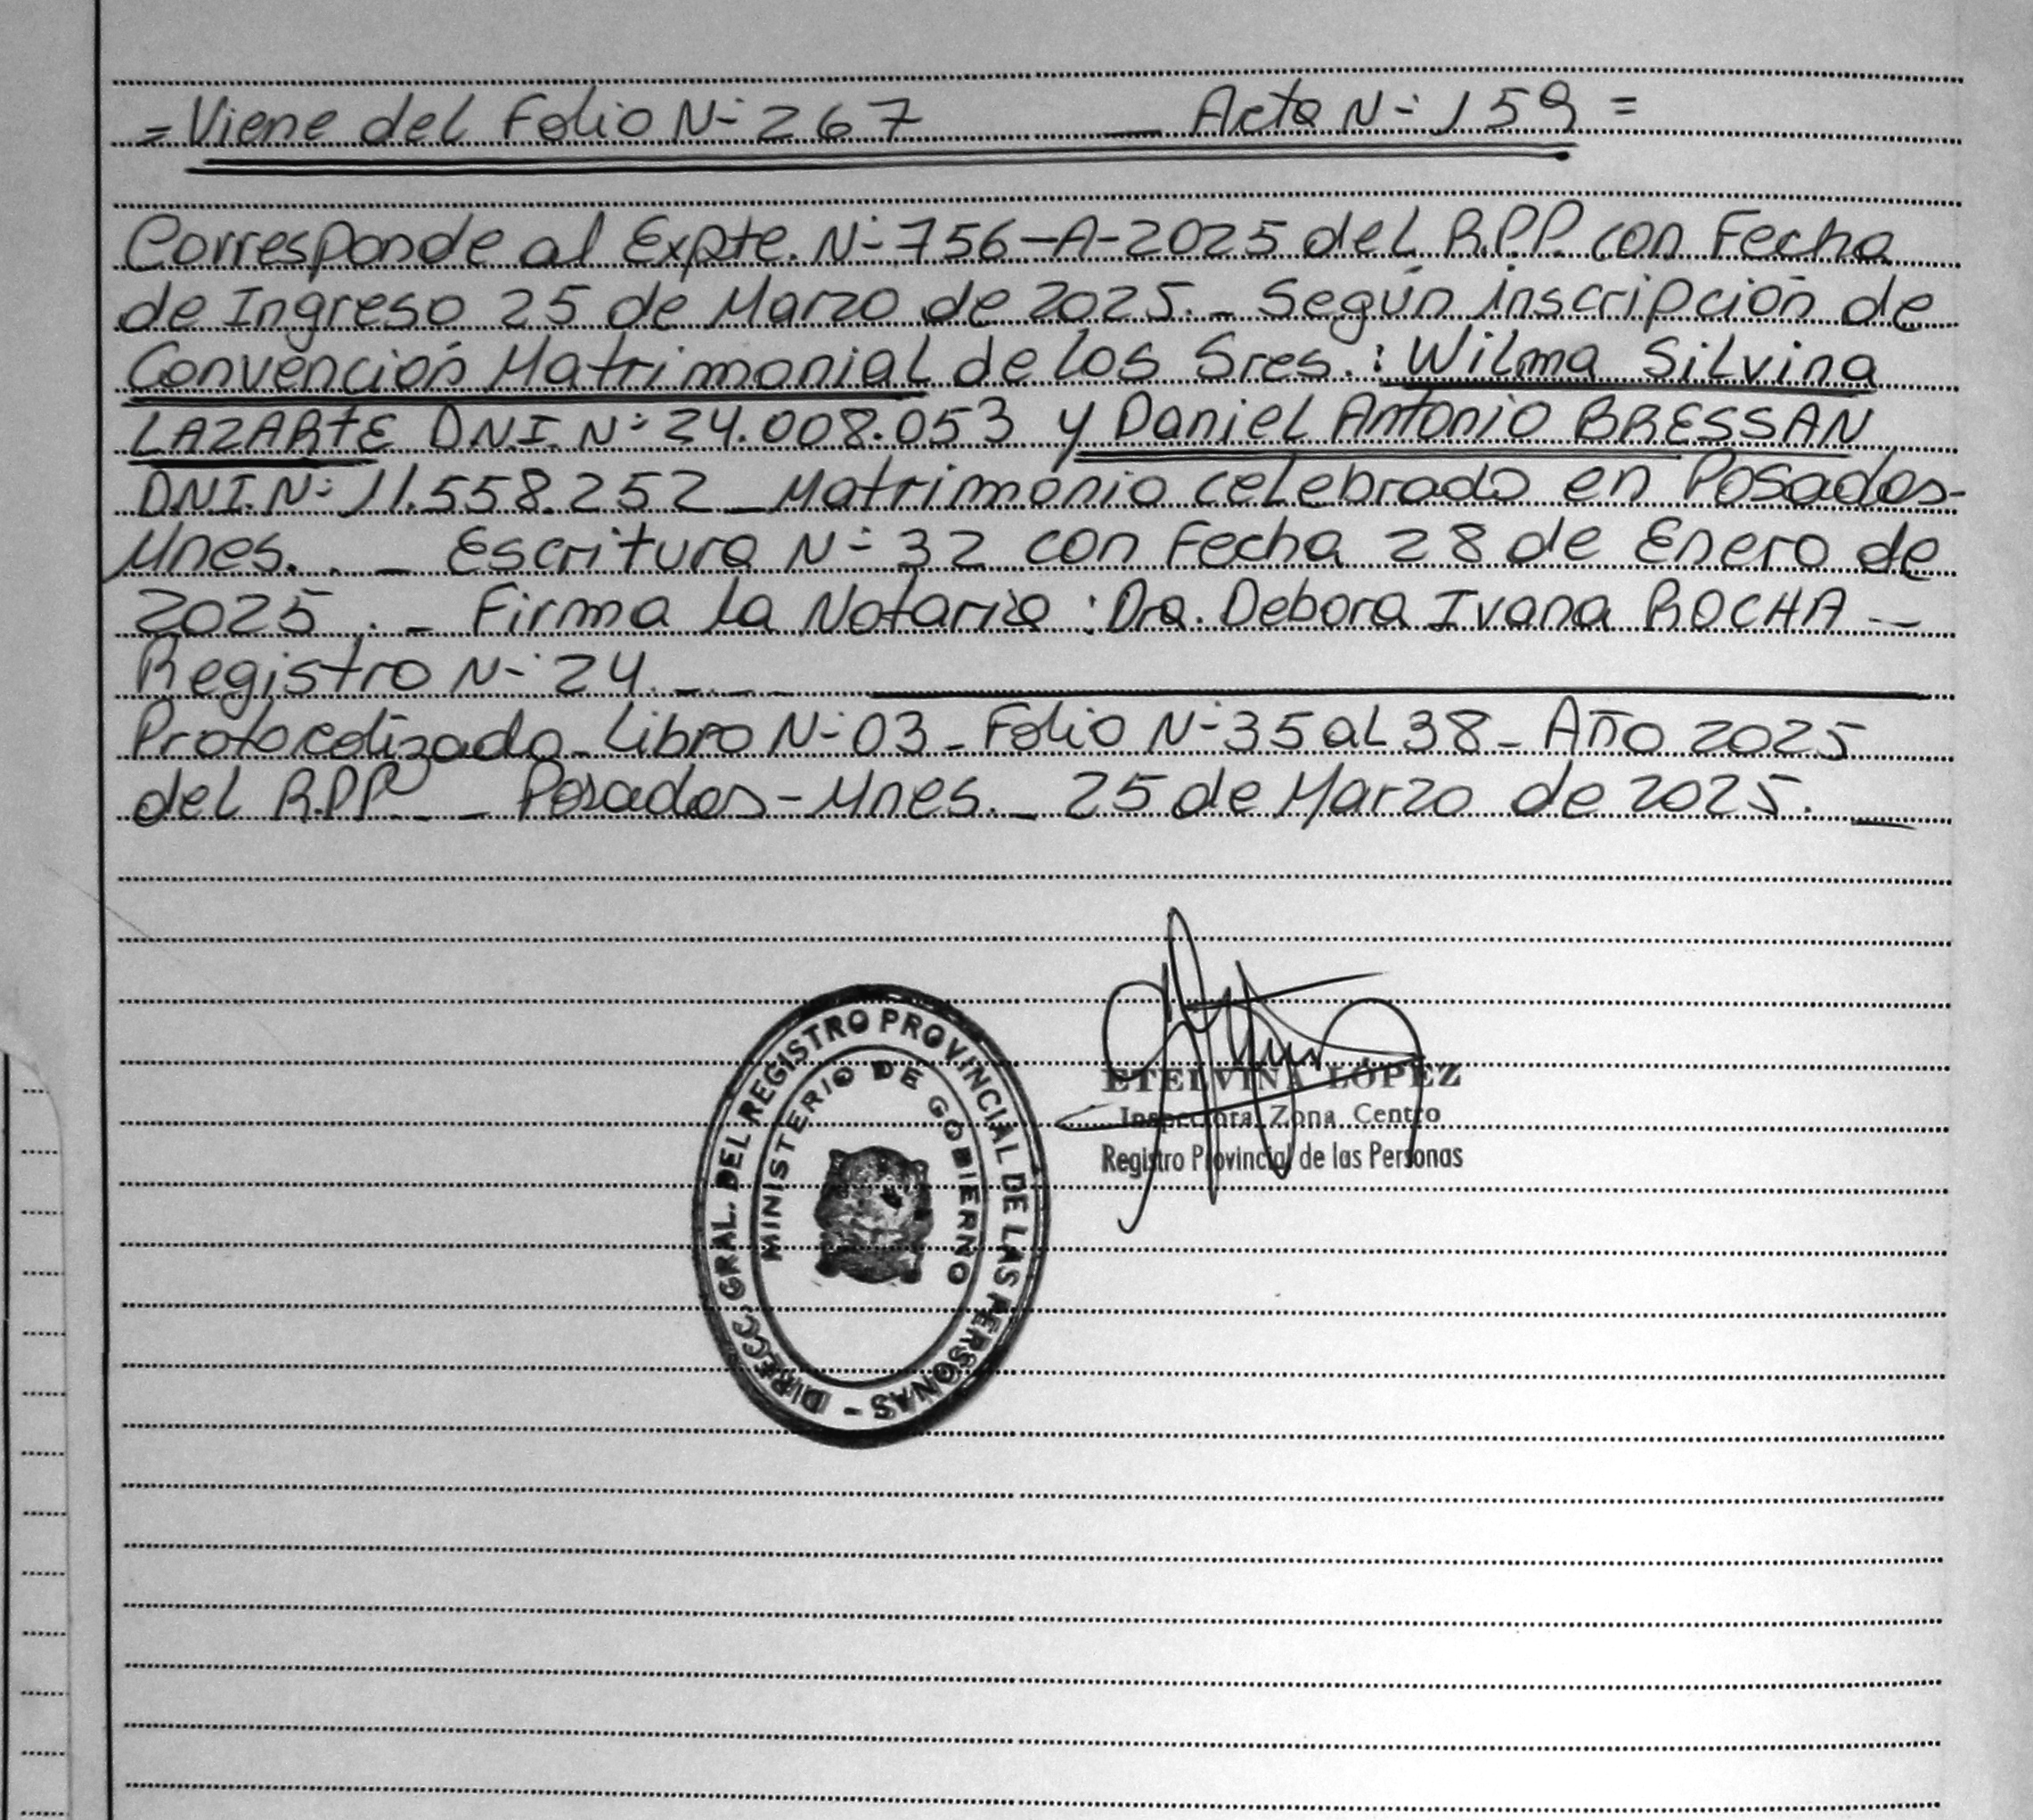 = Viene del Folio N- 267 — Acta N- 159 =
Corresponde al Expte. N- 756-A-2025 del R.P.P. con Fecha
de Ingreso 25 de Marzo de 2025._ Según inscripción de
Convención Matrimonial de los Sres.: Wilma Silvina
LAZARTE DNI. N- 24.008.053 y Daniel Antonio BRESSAN
DNI. N- 11.558.252 _ Matrimonio celebrado en Posadas-
Mnes. . _ Escritura N- 32 con Fecha 28 de Enero de
2025 . _ Firma la Notaria : Dra. Debora Ivana ROCHA _
Registro N- 24 ._._._
Protocolizado _ Libro N- 03 _ Folio N- 35 al 38 _ Año 2025
del R.P.P. _ _ Posadas - Mnes. _ 25 de Marzo de 2025. _
DIRECC. GRAL. DEL REGISTRO PROVINCIAL DE LAS PERSONAS -
MINISTERIO DE GOBIERNO
ETELVINA LÓPEZ
Inspectora Zona Centro
Registro Provincial de las Personas